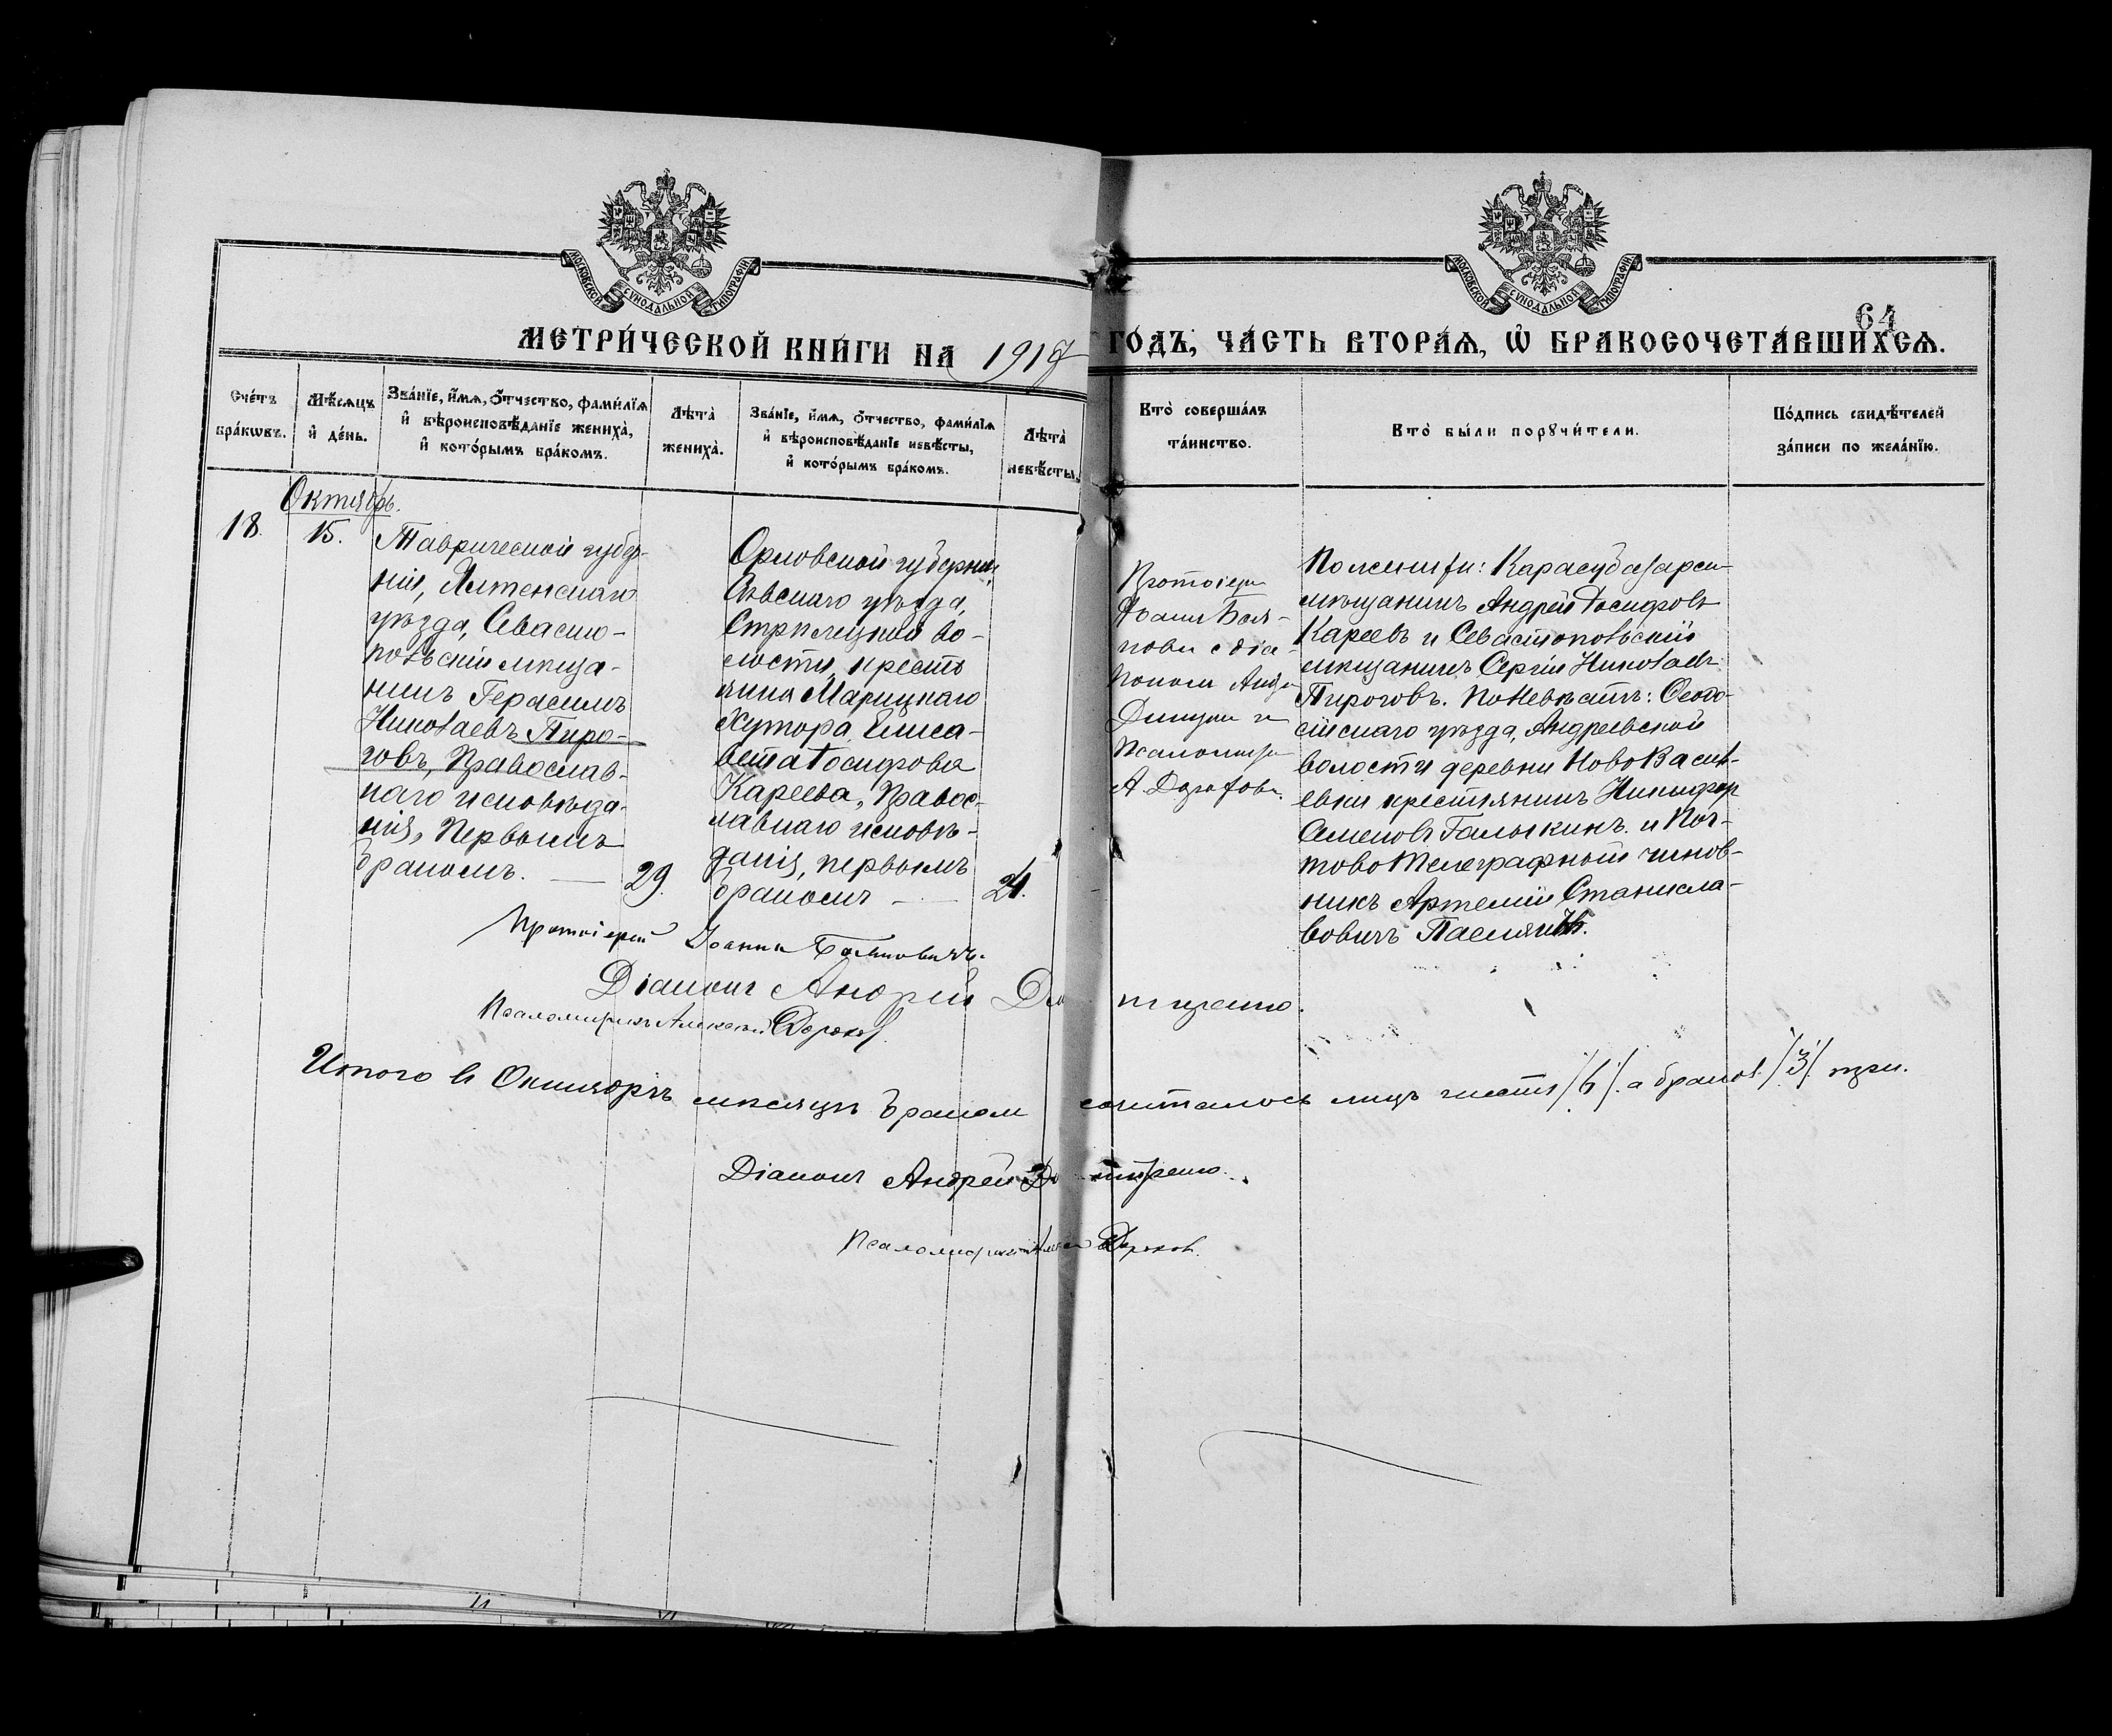 МОСКОВСКОЙ СѴНОДАЛЬНОЙ ТИПОГРАФІИ
МОСКОВСКОЙ СѴНОДАЛЬНОЙ ТИПОГРАФІИ
64
МЕТРИ́ЧЕСКОЙ КНИ́ГИ НА 1917 ГО́ДЪ, ЧА́СТЬ ВТОРА́Ѧ, Ѽ БРАКОСОЧЕТА́ВШИХСѦ.
Сче́тъ бра́кѡвъ.
Мѣ́сѧцъ и҆ де́нь.
Зва́нїе, и҆́мѧ, ѻ҆́тчество, фами́лїѧ и҆ вѣроисповѣ́данїе жениха̀, и҆ кото́рымъ бра́комъ.
Лѣ́та жениха̀.
Зва́нїе, и҆́мѧ, ѻ҆́тчество, фами́лїѧ и҆ вѣроисповѣ́данїе невѣ́сты, и҆ кото́рымъ бра́комъ.
Лѣ́та невѣ́сты.
Кто̀ соверша́лъ та́инство.
Кто̀ бы́ли порꙋчи́тели.
По́дпись свидѣ́телей за́писи по жела́нїю.
Октябрь.
18.
15.
Таврической губер-
ніи, Ялтенскаго
уѣзда, Севасто-
польскій мѣща-
нинъ Герасимъ
Николаевъ Пиро-
говъ, Православ-
наго исповѣда-
нія, Первымъ
бракомъ.
29.
Орловской губерніи,
Сѣвскаго уѣзда,
Стрѣлецкой во-
лости, кресть
янка Марицкаго
Хутора Елиса-
вета Іосифова
Кареева, Правос-
лавнаго исповѣ-
данія, первымъ
бракомъ
21.
Протоіерей
Іоаннъ Боя-
новичъ с діа-
кономъ Андр
и
А. Дороховъ.
По женихѣ: Карасубазарск
мѣщанинъ Андрей Іосифовъ
Кареевъ и Севастопольскій
мѣщанинъ Сергій Николаевъ
Пироговъ. По невѣстѣ: Ѳеодо-
сійскаго уѣзда, Андреевской
волости деревни Ново Василь-
евки крестьянинъ Никифор
Семеновъ Галыкинъ. и Поч-
тово Телеграфный чинов-
никъ Артемій Станисла-
вовичъ
Протоіерей Іоаннъ Бояновичъ.
Діаконъ Андрей
Псаломщикъ Алексѣй Дороховъ.
Итого въ Октябрѣ мѣсяцѣ бракомъ сочеталось лицъ шесть /6/. а браковъ /3/. три.
Діаконъ Андрей
Псаломщикъ Алексѣй Дороховъ.